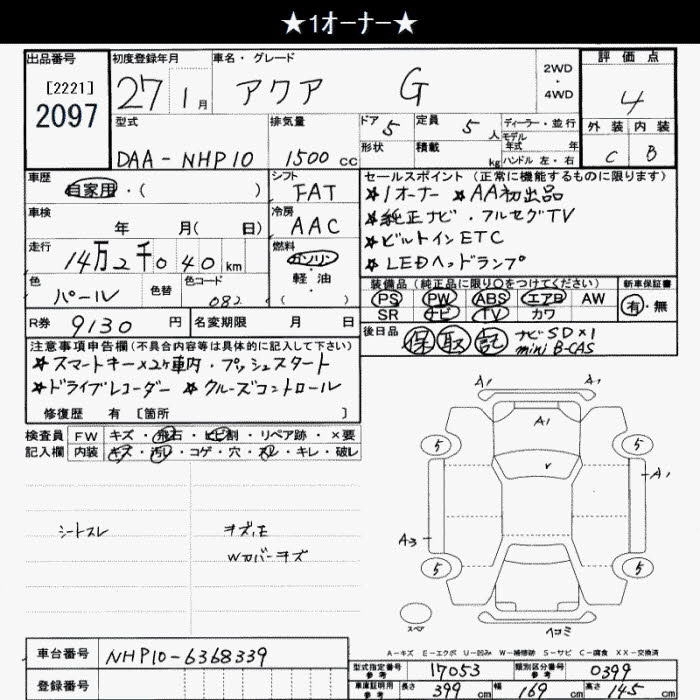 ★1オーナー★
出品番号
[2221]
2097
初度登録年月
27 1月
車名・グレード
アクア G
2WD
・
4WD
評価点
4
外装 内装
C B
型式
DAA-NHP10
排気量
1500cc
ドア 5
定員 5人
形状
積載 kg
ディーラー・並行
モデル年式 年
ハンドル 左・右
車歴
自家用・( )
シフト
FAT
車検
年 月( 日)
冷房
AAC
走行
14万2千040km
燃料
ガソリン
軽油
・
色
パール
色替
色コード
082
R券
9130円
名変期限 月 日
セールスポイント(正常に機能するものに限ります)
★1オーナー ★AA初出品
★純正ナビ・フルセグTV
★ビルトインETC
★LEDヘッドランプ
装備品(純正品に限り○をつけてください)
PS PW ABS エアB AW
SR ナビ TV カワ
新車保証書
有・無
後日品
保 取 記
ナビSD×1
mini B-CAS
注意事項申告欄(不具合内容等は具体的に記入して下さい)
★スマートキー×2ヶ車内・プッシュスタート
★ドライブレコーダー ★クルーズコントロール
修復歴 有[箇所 ]
検査員 FW キズ・飛石・ヒビ割・リペア跡・×要
記入欄 内装 キズ・汚レ・コゲ・穴・スレ・キレ・破レ
シートスレ
Wカバーキズ
A1 A1
A1
5 5
A1
A3
5 5
スペア
ヘコミ
A-キズ E-エクボ U-凹み W-補修跡 S-サビ C-腐食 XX-交換済
車台番号
NHP10-6368339
登録番号
型式指定番号
参考
17053
類別区分番号
参考
0399
車庫証明用
参考
長さ 399cm
幅 169cm
高さ 145cm